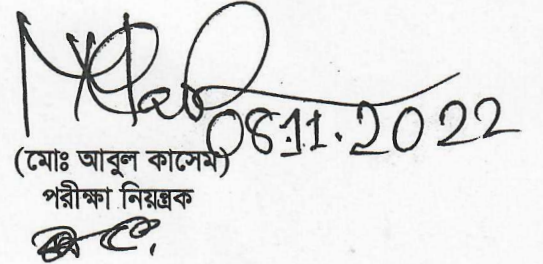 08.11.2022
(মোঃ আবুল কাসেম)
পরীক্ষা নিয়ন্ত্রক